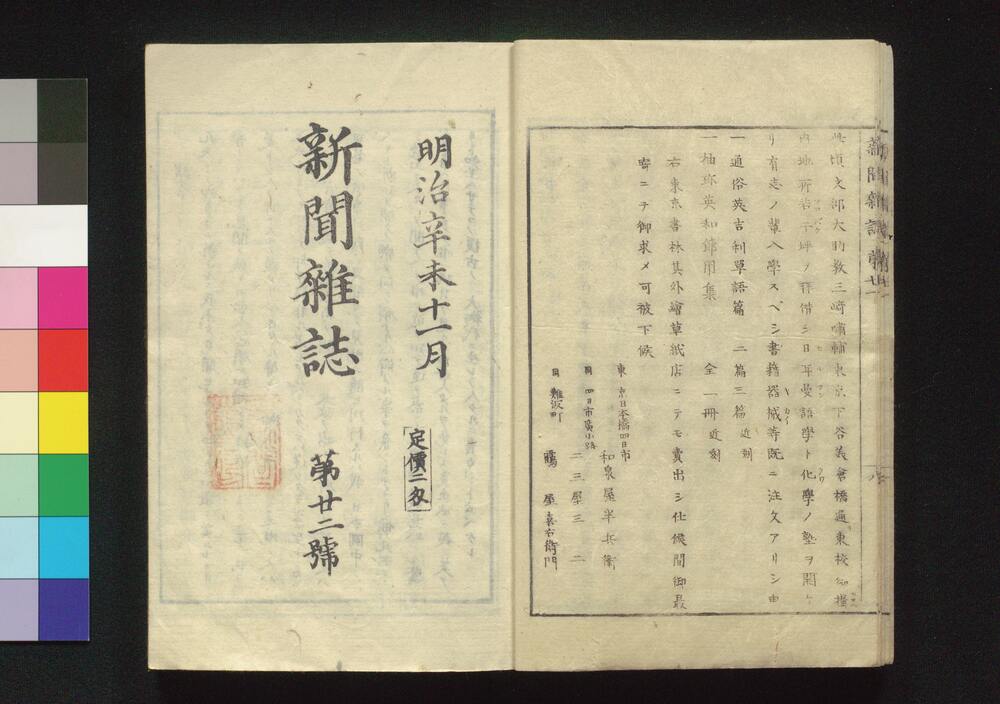 此頃文部大助教三﨑嘯輔東京下谷義倉橋通東校御構
内地所若干坪ノ拝借シ日耳曼語學ト化學ノ塾ヲ開ケ
リ有志ノ輩入學スベシ書籍器械等既ニ注文アリシ由
一通俗英吉利單語篇 二篇三篇 近刻
一袖珍英和節用集 全一冊 近刻
右東京書林其外繪草紙店ニテモ賣出シ仕候間御最
寄ニテ御求メ可被下候
東京日本橋四日市
和泉屋半兵衛
同 四日市廣小路
二三屋三二
同 難波町
屋嘉右衛門
新聞雜誌 第廿一
八
明治辛未十一月
定價二匁
新聞雜誌
第廿二號